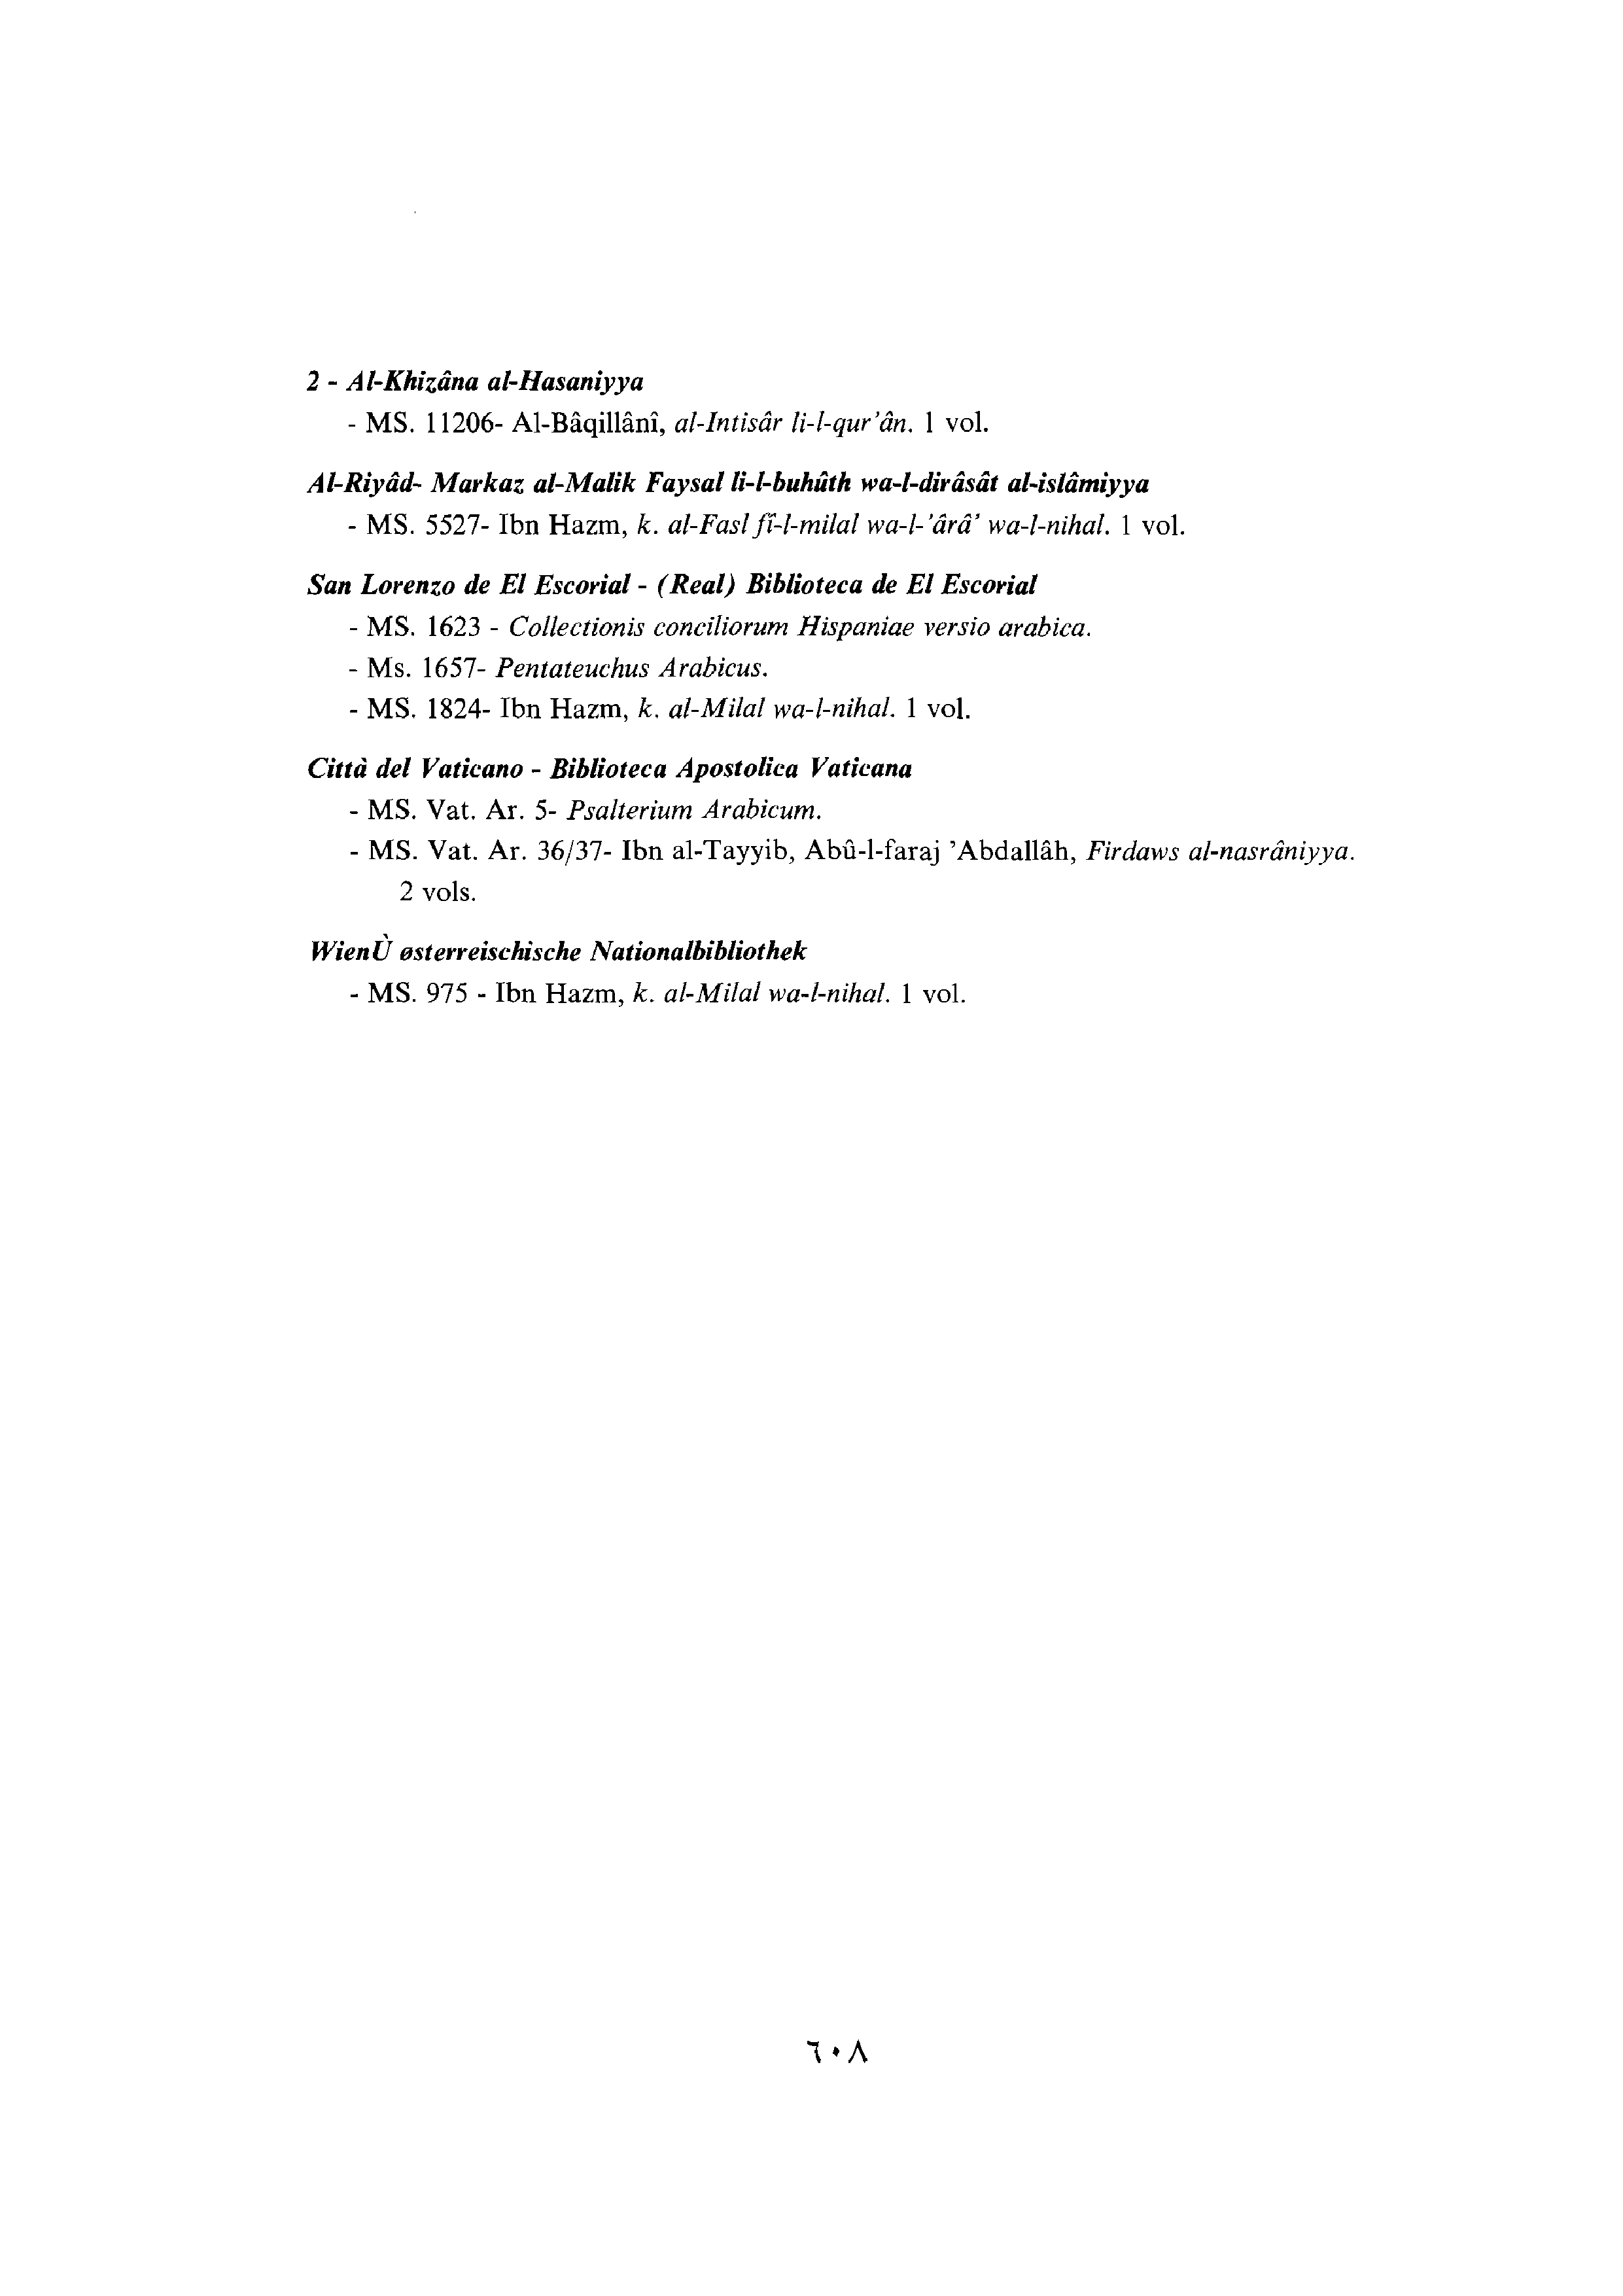 2 - Al-Khizâna al-Hasaniyya
- MS. 11206- Al-Bâqillânî, al-Intisâr li-l-qur'ân. 1 vol.
Al-Riyâd- Markaz al-Malik Faysal li-l-buhûth wa-l-dirâsât al-islâmiyya
- MS. 5527- Ibn Hazm, k. al-Fasl fî-l-milal wa-l-'ârâ' wa-l-nihal. 1 vol.
San Lorenzo de El Escorial - (Real) Biblioteca de El Escorial
- MS. 1623 - Collectionis conciliorum Hispaniae versio arabica.
- Ms. 1657- Pentateuchus Arabicus.
- MS. 1824- Ibn Hazm, k. al-Milal wa-l-nihal. 1 vol.
Città del Vaticano - Biblioteca Apostolica Vaticana
- MS. Vat. Ar. 5- Psalterium Arabicum.
- MS. Vat. Ar. 36/37- Ibn al-Tayyib, Abû-l-faraj 'Abdallâh, Firdaws al-nasrâniyya.
2 vols.
WienÙ østerreischische Nationalbibliothek
- MS. 975 - Ibn Hazm, k. al-Milal wa-l-nihal. 1 vol.
٦٠٨